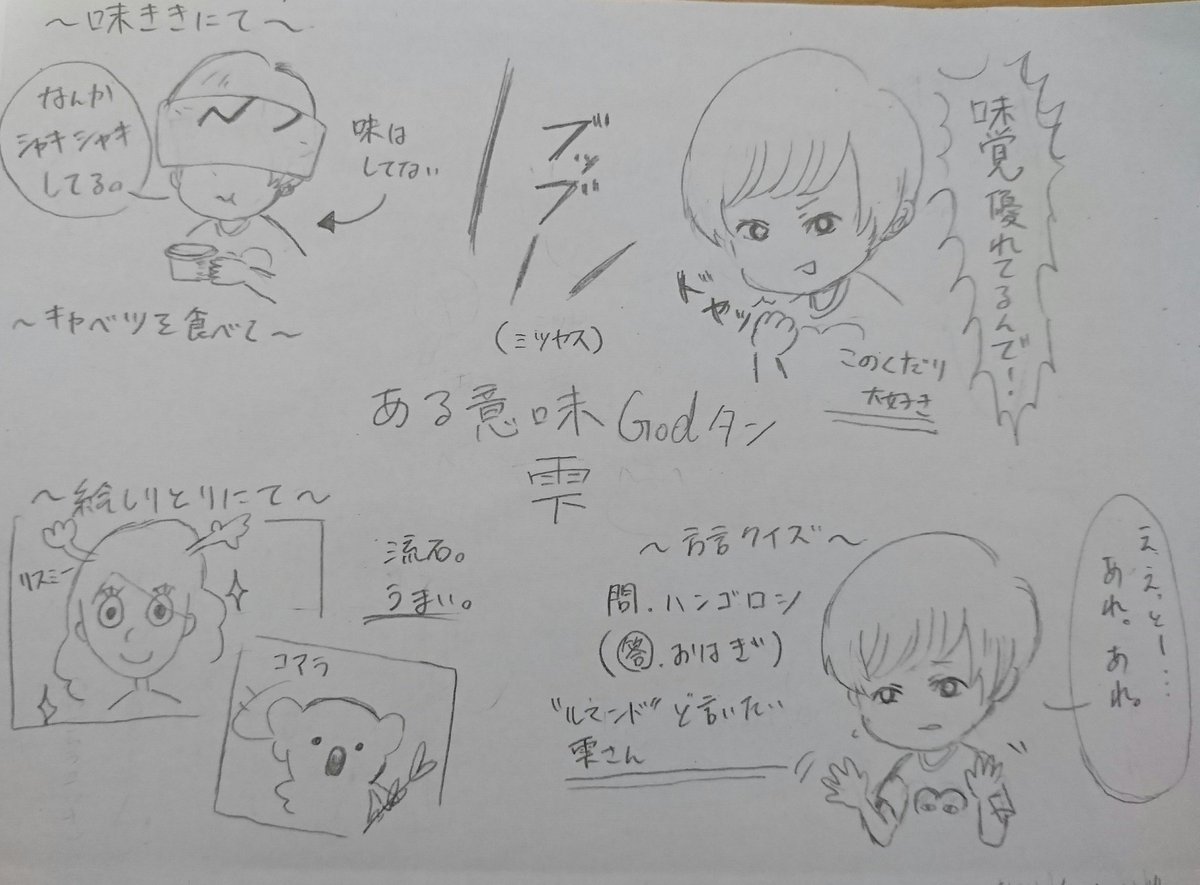 ～味ききにて～
なんか
シャキシャキ
してる。
味は
してない
～キャベツを食べて～
ブッ
ブー
(ミツヤス)
味覚優れてるんで!
ドヤッ
このくだり
大好き
ある意味Godタン
雫
～絵しりとりにて～
リスミー
コアラ
流石。
うまい。
～方言クイズ～
問.ハンゴロシ
(答.おはぎ)
"ルマンド"と言いたい
雫さん
ええっとー…
あれ。あれ。